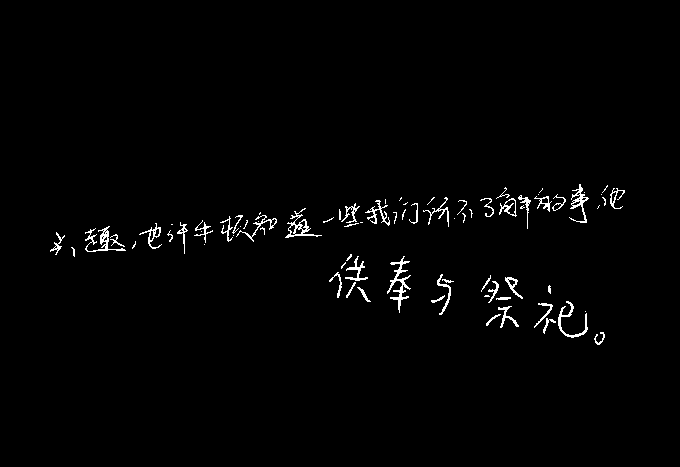 兴趣，也许牛顿知道一些我们所不了解的事，他
供奉与祭祀。